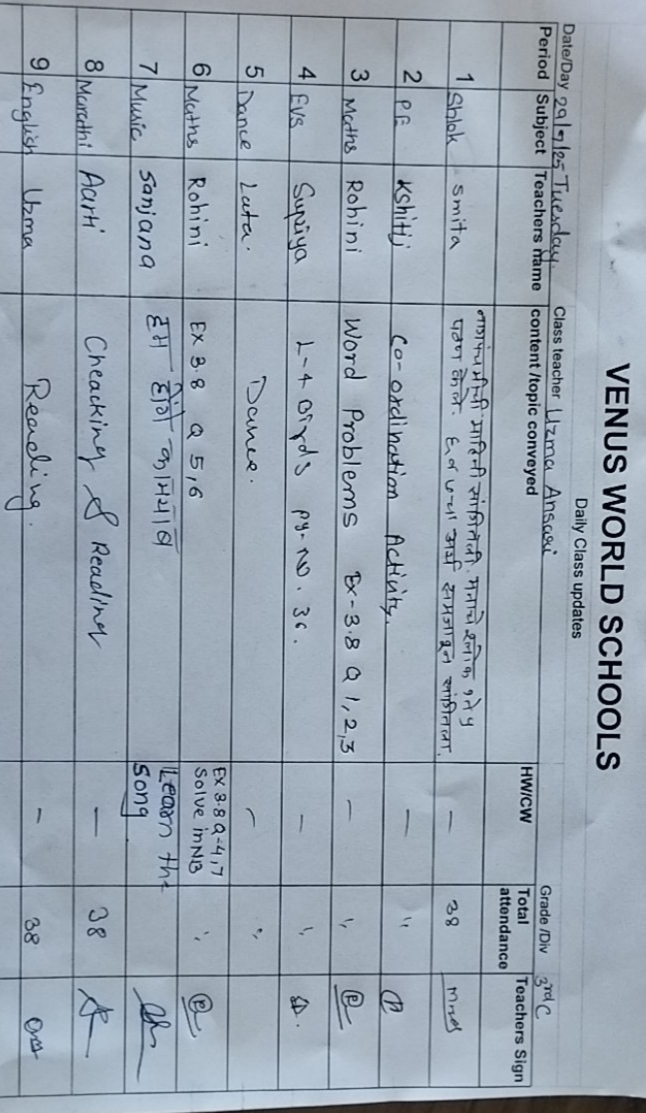 VENUS WORLD SCHOOLS
Daily Class updates
Date/Day 29/7/25 Tuesday. Class teacher Uzma Ansari Grade /Div 3rd C
Period Subject Teachers name content/topic conveyed HW/CW Total attendance Teachers Sign
1 Shlok Smita नागपंचमीची माहिती सांगितली. मनाचे श्लोक १ ते ५ — 38
पठण केले. ६ व ७ चा अर्थ समजावून सांगितला.
2 PE Kshitij Co-ordination Activity. — "
3 Maths Rohini Word Problems Ex-3.8 Q 1,2,3 — "
4 EVS Supriya L-4 Birds pg-no. 36. — "
5 Dance Lata. Dance. — "
6 Maths Rohini EX 3.8 Q 5,6 EX 3.8 Q-4,7 "
Solve in NB
7 Music Sanjana हम होंगे कामयाब Learn the
Song
8 Marathi Aarti Cheacking & Reading — 38
9 English Uzma Reading. — 38